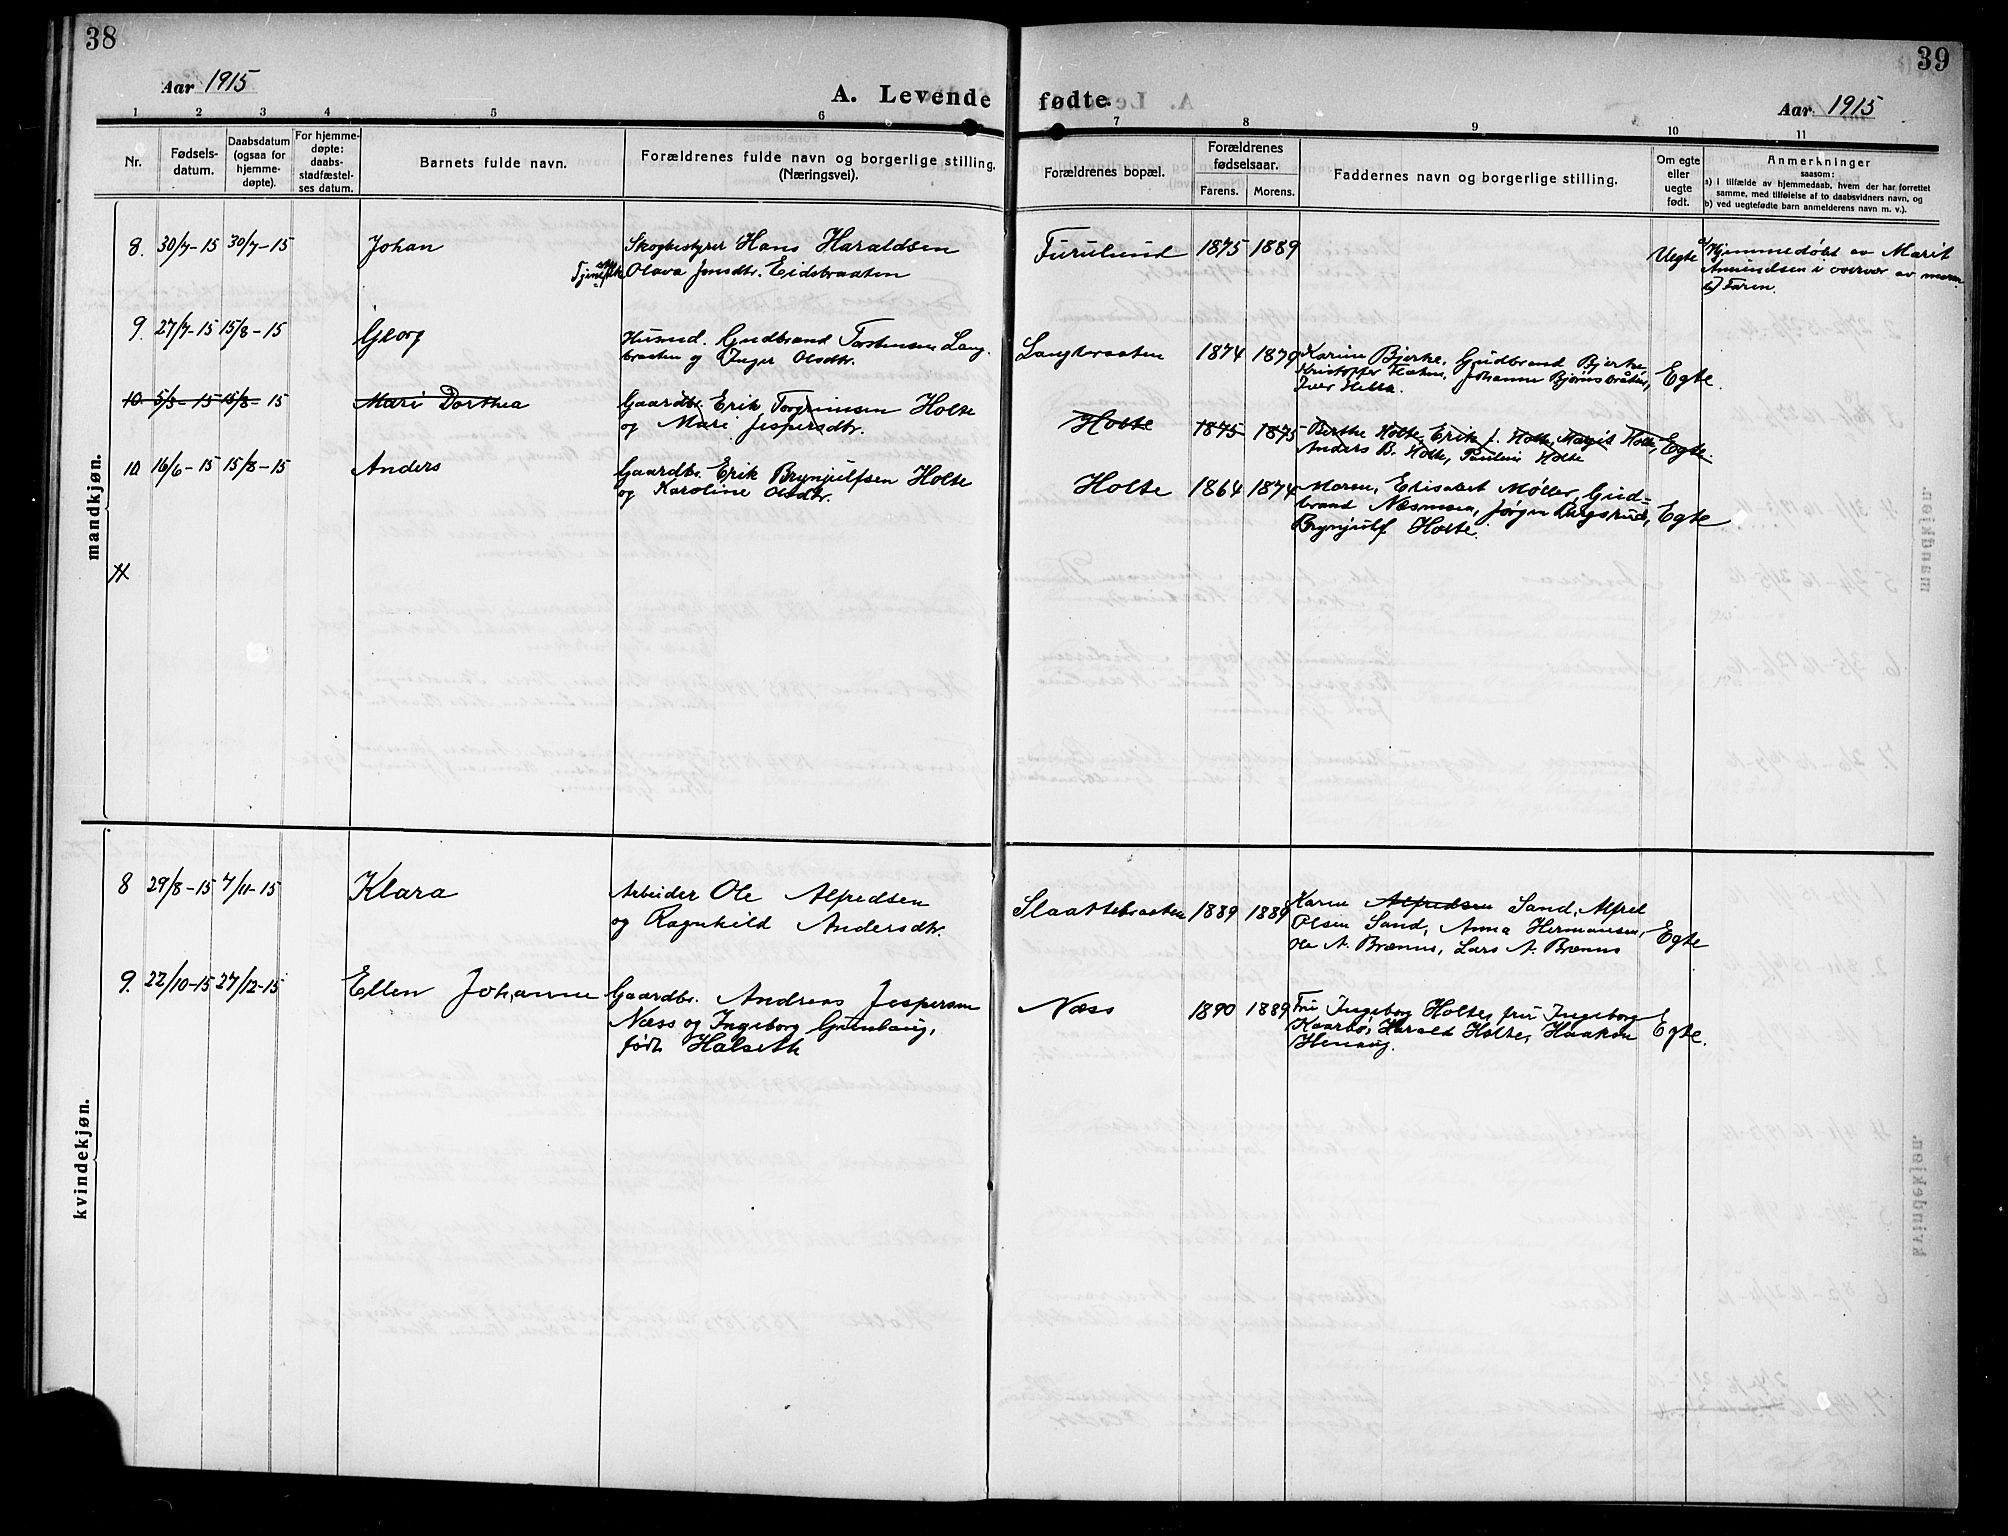 38
Aar 1915
A. Levende
1 2 3 4 5 6
Nr.
Fødsels-
datum.
Daabsdatum
(ogsaa for
hjemme-
døpte).
For hjemme-
døpte:
daabs-
stadfæstel-
ses datum.
Barnets fulde navn.
Forældrenes fulde navn og borgerlige stilling.
(Næringsvei).
mandkjøn.
8. 30/7-15 30/7-15 Johan
Skogbestyrer Hans Haraldsen
Olava Jensdtr. Eidsbraaten
9. 27/7-15 15/8-15 Georg
Husmd. Gudbrand Torstensen Lang-
braaten og Inger Olsdtr.
10. 5/3-15 15/8-15 Mari Dorthea
Gaardbr. Erik Torgrimsen Holte
og Mari Jespersdtr.
10 16/6-15 15/8-15 Anders
Gaardbr. Erik Brynjulfsen Holte
og Karoline Olsdtr.
kvindekjøn.
8 29/8-15 7/11-15 Klara
Arbeider Ole Alfredsen
og Ragnhild Andersdtr.
9. 22/10-15 27/12-15 Ellen Johanne
Gaardbr. Andreas Jespersen
Næss og Ingeborg Gunlaug,
født Halseth
39
fødte.
Aar 1915
7 8 9 10 11
Forældrenes bopæl.
Forældrenes
fødselsaar.
Farens. Morens.
Faddernes navn og borgerlige stilling.
Om egte
eller
uegte
født.
Anmerkninger
saasom:
a) i tilfælde av hjemmedaab, hvem der har forrettet
samme, med tilføielse av to daabsvidners navn, og
b) ved uegtefødte barn anmelderens navn m. v.).
Furulund 1875 1889 Uegte
a) Hjemmedøbt av Marit
Amundsen i overvær av moren
b) Faren.
Langbraaten 1874 1879
Karine Bjerke, Gudbrand Bjerke,
Kristoffer Johanne Bjørnsbråten,
Iver Egte.
Holte 1875 1875
Berthe Holte, Erik J. Holte, Margit Holte,
Anders B. Holte, Pauline Holte
Egte.
Holte 1864 1874
Moren, Elisabet Møller, Gud-
brand Næsmoen, Jørgen Bergsrud,
Brynjulf Holte.
Egte
Slaattebraaten 1889 1889
Karen Alfredsen Sand, Alfred
Olsen Sand, Anna Hermansen,
Ole A. Brænna, Lars A. Brænna
Egte
Næss 1890 1889
Fru Ingeborg Holte, fru Ingeborg
Kaarbø, Harald Holte, Haakon
Henaug.
Egte.
mandkjøn.
kvindekjøn.